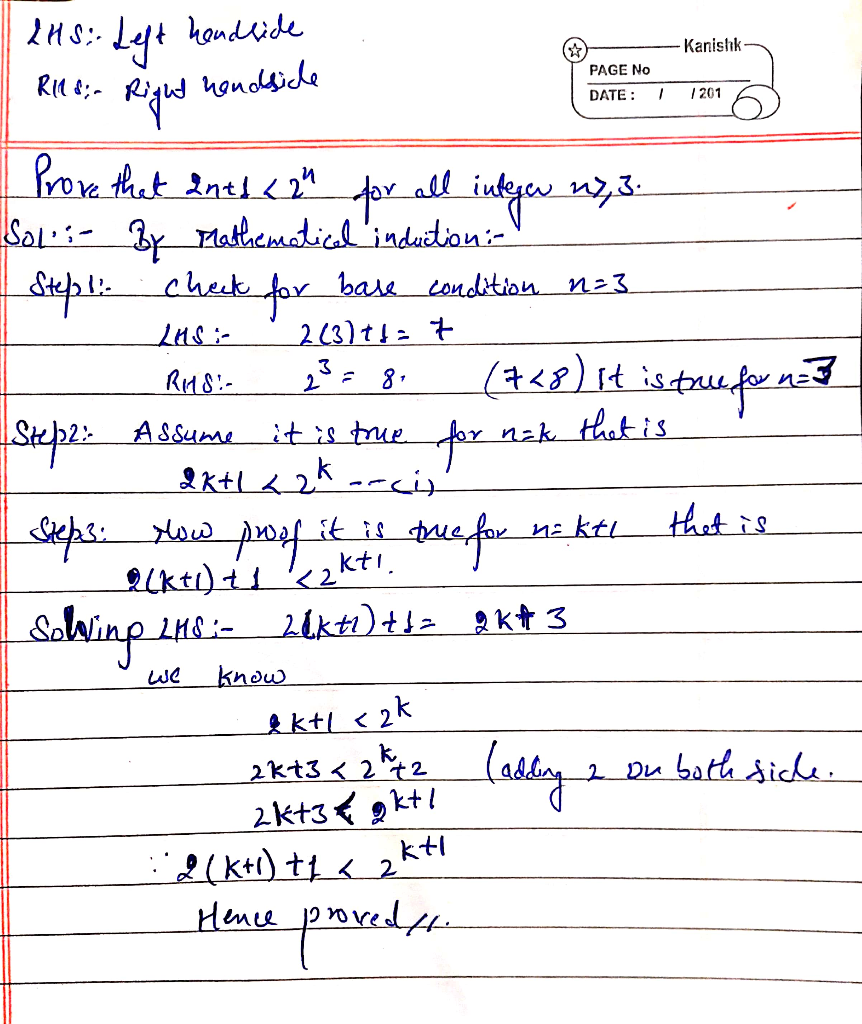 LHS:- Left handside
Kanishk
RHS:- Right handside
PAGE No
DATE: / /201
Prove that 2n+1 < 2^n for all integer n≥3.
Sol.:- By Mathematical induction:-
Step1:- check for base condition n=3
LHS:- 2(3)+1= 7
RHS:- 2^3 = 8. (7<8) It is true for n=3
Step2:- Assume it is true for n=k that is
2k+1 < 2^k ---(i)
Step3: Now proof it is true for n=k+1 that is
2(k+1)+1 < 2^k+1.
Solving LHS:- 2(k+1)+1= 2k+3
we know
2k+1 < 2^k
2k+3 < 2^k+2 (adding 2 on both side.
2k+3 < 2^k+1
∴ 2(k+1)+1 < 2^k+1
Hence proved //.